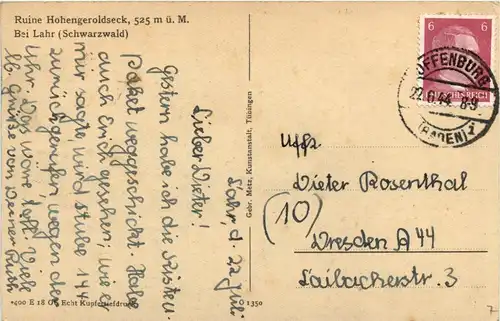 Ruine Hohengeroldseck, 525 m ü. M.
Bei Lahr (Schwarzwald)
Lahr, d. 22 Juli
Lieber Dieter!
Gestern habe ich die Kisten
Paket weggeschickt. Habe
auch Erich gesehen, wie er
mir sagte wird Stube 144
zurückgerufen wegen der
Uhr. Das wäre toll. Viele
lb. Grüsse von Werner
*400 E 18 G Echt Kupfertiefdruck
Gebr. Metz, Kunstanstalt, Tübingen
O 1350
6 6
DEUTSCHES REICH
OFFENBURG
44 8-9
(BADEN) 1
Uffz.
Dieter Rosenthal
(10)
Dresden A 44
Laibacherstr. 3
7